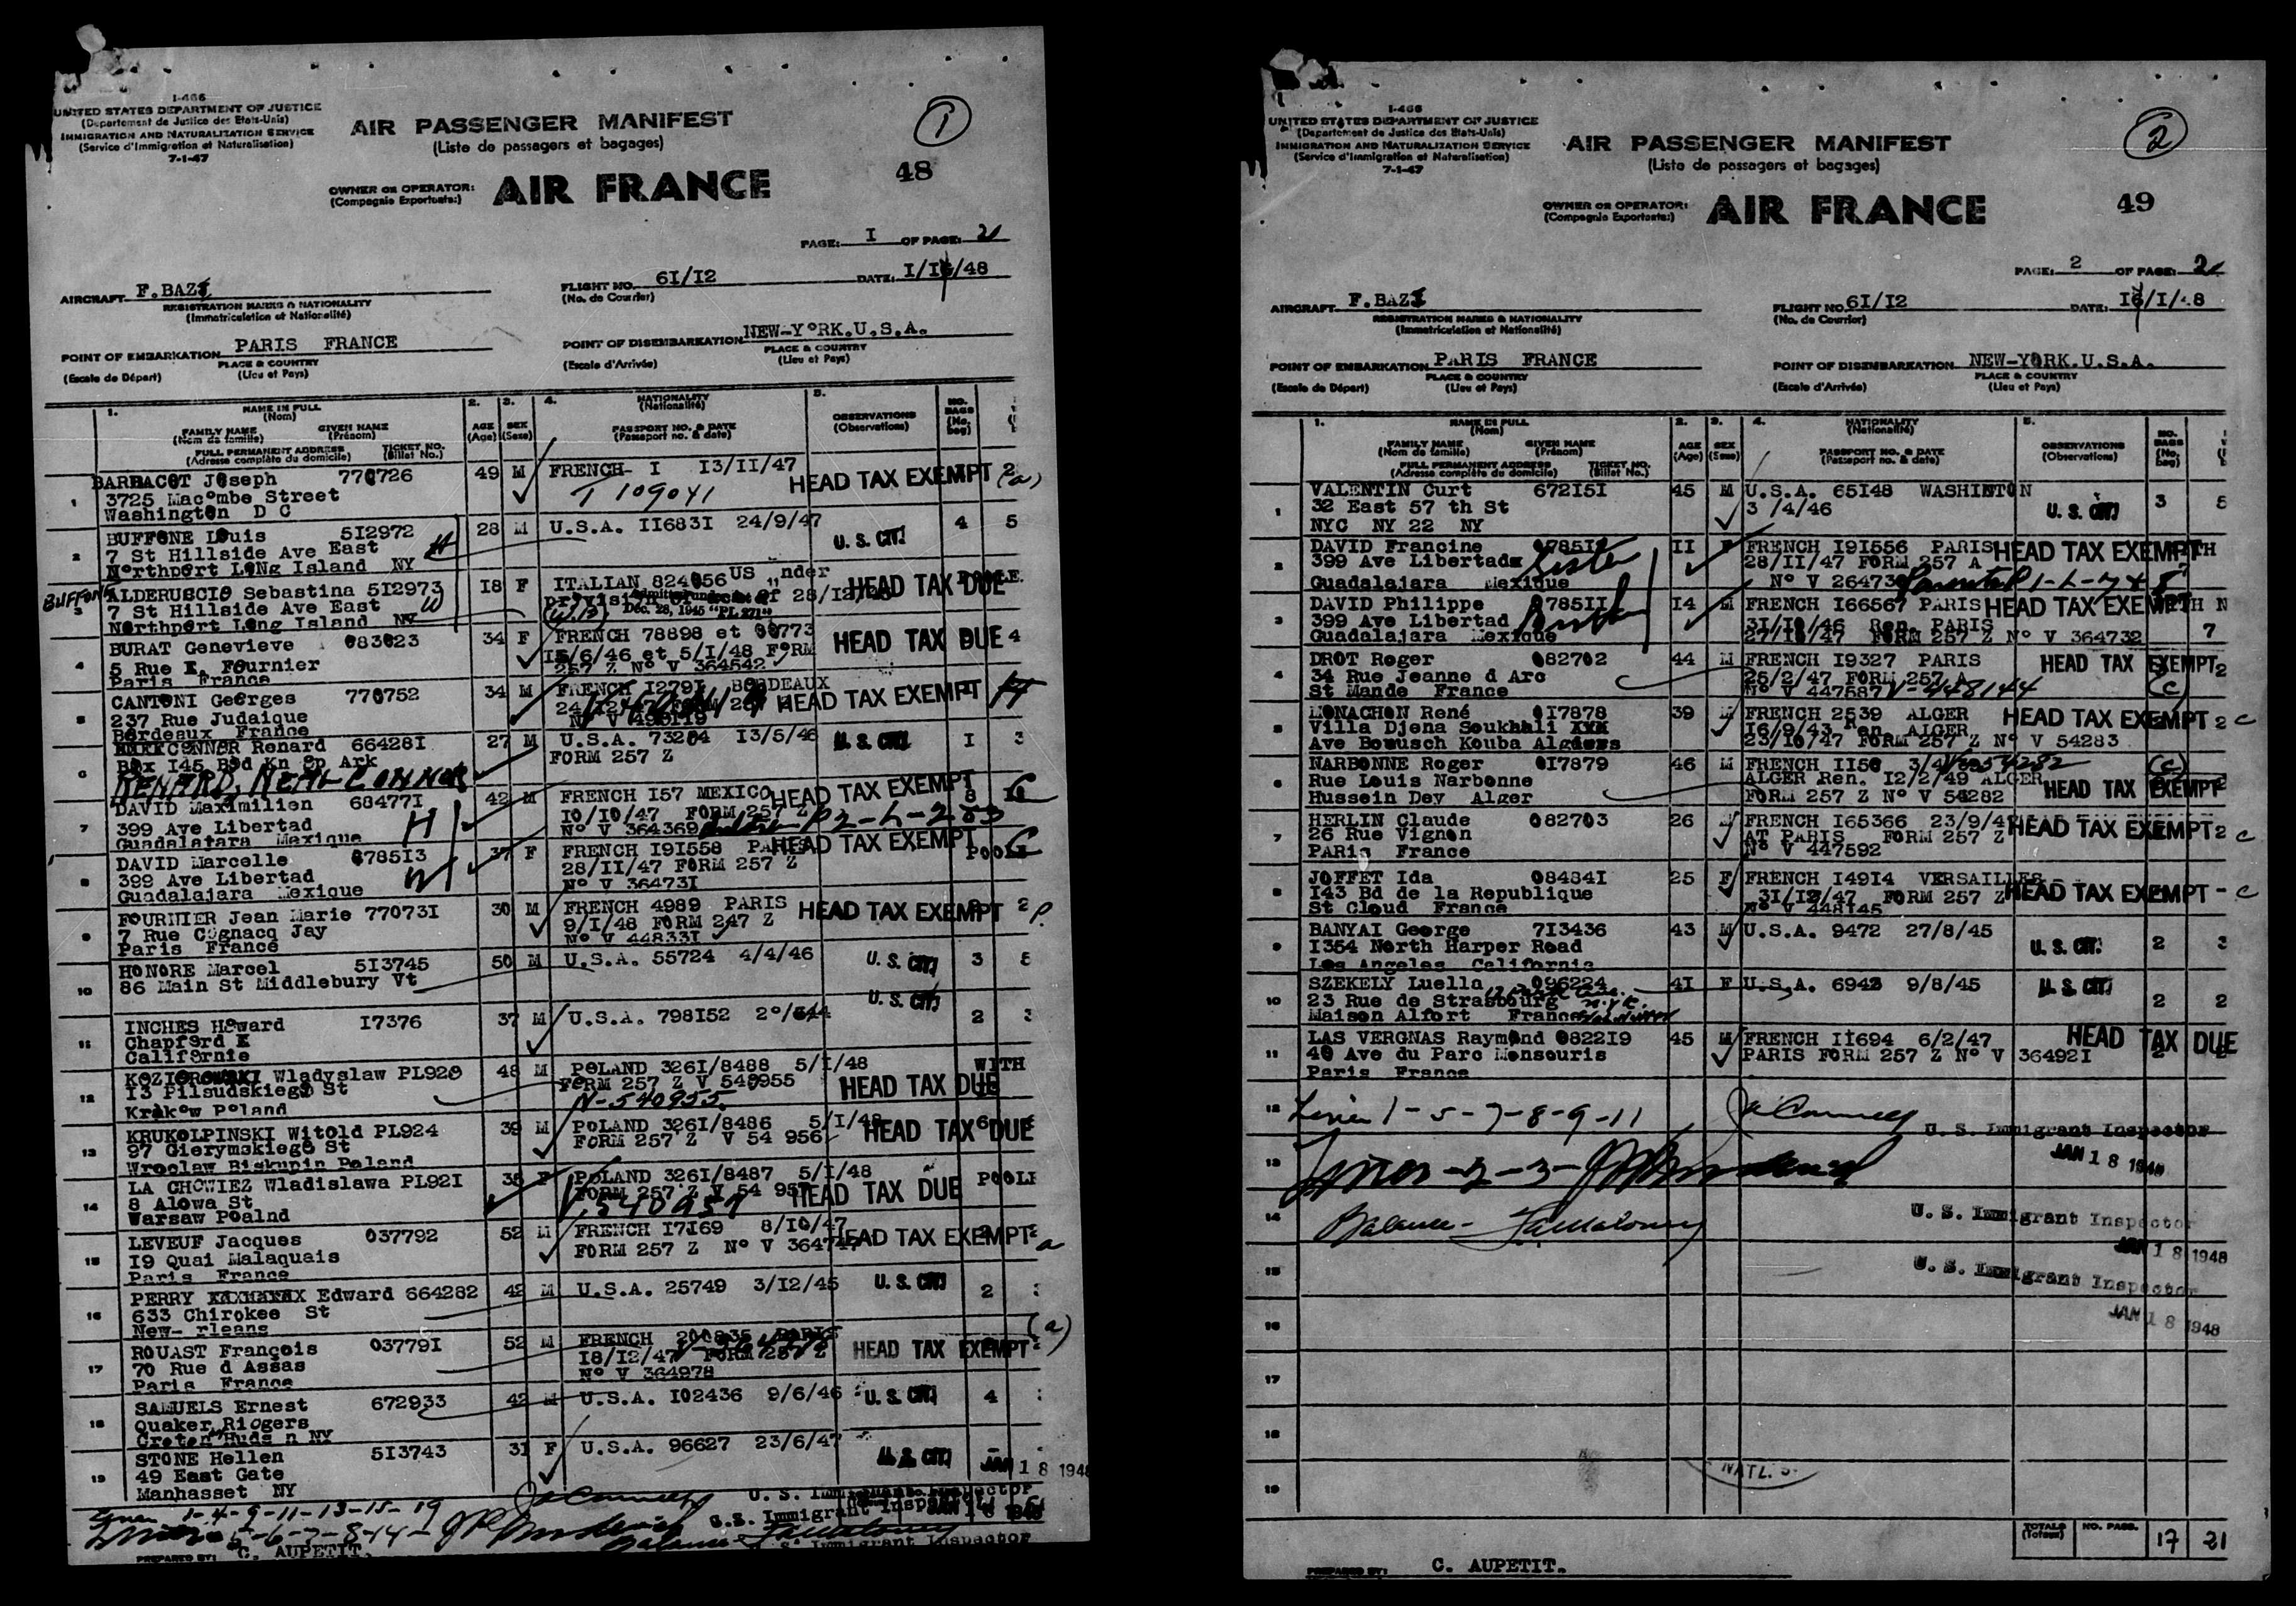 I-466
UNITED STATES DEPARTMENT OF JUSTICE
(Departement de Justice des Etats-Unis)
IMMIGRATION AND NATURALIZATION SERVICE
(Service d'Immigration et Naturalisation)
7-1-47
AIR PASSENGER MANIFEST
(Liste de passagers et bagages)
1
48
OWNER OR OPERATOR:
(Compagnie Exportante:)
AIR FRANCE
PAGE: I OF PAGE: 2
AIRCRAFT F.BAZ
REGISTRATION MARKS & NATIONALITY
(Immatriculation et Nationalité)
FLIGHT NO. 6I/I2
(No. de Courrier)
DATE: /48
POINT OF EMBARKATION PARIS FRANCE
PLACE & COUNTRY
(Escale de Départ) (Lieu et Pays)
POINT OF DISEMBARKATION NEW-YORK.U.S.A.
PLACE & COUNTRY
(Escale d'Arrivée) (Lieu et Pays)
1. NAME IN FULL
(Nom)
FAMILY NAME GIVEN NAME
(Nom de famille) (Prénom)
FULL PERMANENT ADDRESS TICKET NO.
(Adresse complète du domicile) (Billet No.)
2. AGE (Age)
3. SEX (Sexe)
4. NATIONALITY
(Nationalité)
PASSPORT NO. & DATE
(Passeport no. & date)
5. OBSERVATIONS
(Observations)
NO. BAGS (No. bag)
1 BARBACOT Joseph 770726 49 M FRENCH- I I3/II/47 HEAD TAX EXEMPT 2 (a)
3725 Macombe Street T 109041
Washington D C
2 BUFFONE Louis 5I2972 28 M U.S.A. II683I 24/9/47 U. S. CIT. 4 5
7 St Hillside Ave East H
Northport LONg Island NY
3 Buffone ALDERUSCIO Sebastina 5I2973 I8 F ITALIAN 824056 US under HEAD TAX DUE
7 St Hillside Ave East W Admitted under
Northport Long Island NY Dec. 28, 1945 "PL 271"
4 BURAT Genevieve 083023 34 F FRENCH 78898 et 00773 HEAD TAX DUE 4
5 Rue Fournier I5/6/46 et 5/I/48 FORM
Paris France 257 Z N° V 364542
5 CANTONI Georges 770752 34 M FRENCH I279I BORDEAUX HEAD TAX EXEMPT
237 Rue Judaique
Bordeaux France
6 CONNOR Renard 66428I 27 M U.S.A. 73204 I3/5/46 U. S. CIT. I 3
Box I45 Ark FORM 257 Z
RENARD, NEAL CONNOR
7 DAVID Maximilien 68477I 42 M FRENCH I57 MEXICO HEAD TAX EXEMPT 8
399 Ave Libertad H I0/I0/47 FORM 257 Z
Guadalatara Mexique N° V 364369
8 DAVID Marcelle 0785I3 37 F FRENCH I9I558 HEAD TAX EXEMPT POOLE
399 Ave Libertad W 28/II/47 FORM 257 Z
Guadalajara Mexique N° V 36473I
9 FOURNIER Jean Marie 77073I 30 M FRENCH 4989 PARIS HEAD TAX EXEMPT 2
7 Rue Cognacq Jay 9/I/48 FORM 247 Z
Paris France N° V 44833I
10 HONORE Marcel 5I3745 50 M U.S.A. 55724 4/4/46 U. S. CIT. 3
86 Main St Middlebury Vt
U. S. CIT.
11 INCHES Howard I7376 37 M U.S.A. 798I52 2
Chapford
Californie
12 KOZIOROWSKI Wladyslaw PL920 48 M POLAND 326I/8488 5/I/48 WITH
I3 Pilsudskiego St FORM 257 Z V 540955 HEAD TAX DUE
Krakow Poland V-540955
13 KRUKOLPINSKI Witold PL924 39 M POLAND 326I/8486 5/I/48 HEAD TAX DUE
97 Gierymskiego St FORM 257 Z V 54 956
Wroclaw Biskupin Poland
14 LA CHOWIEZ Wladislawa PL92I F POLAND 326I/8487 5/I/48 HEAD TAX DUE
8 Alowa St FORM 257 Z V 54 957
Warsaw Poalnd V.540957
15 LEVEUF Jacques 037792 52 M FRENCH I7I69 8/I0/47 HEAD TAX EXEMPT a
I9 Quai Malaquais FORM 257 Z N° V
Paris France
16 PERRY Edward 664282 42 M U.S.A. 25749 3/I2/45 U. S. CIT. 2
633 Chirokee St
New- rleans
17 ROUAST François 03779I 52 M FRENCH 200835 PARIS HEAD TAX EXEMPT (a)
70 Rue d Assas I8/I2/47 FORM 257 Z
Paris France N° V 364978
18 SAMUELS Ernest 672933 42 M U.S.A. I02436 9/6/46 U. S. CIT. 4
Quaker Ricgers
Croton Huds n NY
19 STONE Hellen 5I3743 3I F U.S.A. 96627 23/6/47 U. S. CIT.
49 East Gate JAN 18 1948
Manhasset NY
1-4-9-11-13-15-19
U. S. Immigrant Inspector
5-6-7-8-14-
U. S. Immigrant Inspector
Balance
U. S. Immigrant Inspector
PREPARED BY: C. AUPETIT.
I-466
UNITED STATES DEPARTMENT OF JUSTICE
(Departement de Justice des Etats-Unis)
IMMIGRATION AND NATURALIZATION SERVICE
(Service d'Immigration et Naturalisation)
7-1-47
AIR PASSENGER MANIFEST
(Liste de passagers et bagages)
2
49
OWNER OR OPERATOR:
(Compagnie Exportante:)
AIR FRANCE
PAGE: 2 OF PAGE: 2
AIRCRAFT F.BAZ
REGISTRATION MARKS & NATIONALITY
(Immatriculation et Nationalité)
FLIGHT NO. 6I/I2
(No. de Courrier)
DATE:
POINT OF EMBARKATION PARIS FRANCE
PLACE & COUNTRY
(Escale de Départ) (Lieu et Pays)
POINT OF DISEMBARKATION NEW-YORK.U.S.A.
PLACE & COUNTRY
(Escale d'Arrivée) (Lieu et Pays)
1. NAME IN FULL
(Nom)
FAMILY NAME GIVEN NAME
(Nom de famille) (Prénom)
FULL PERMANENT ADDRESS TICKET NO.
(Adresse complète du domicile) (Billet No.)
2. AGE (Age)
3. SEX (Sexe)
4. NATIONALITY
(Nationalité)
PASSPORT NO. & DATE
(Passeport no. & date)
5. OBSERVATIONS
(Observations)
NO. BAGS (No. bag)
1 VALENTIN Curt 672I5I 45 M U.S.A. 65I48 WASHINTON 3
32 East 57 th St 3 /4/46 U. S. CIT.
NYC NY 22 NY
2 DAVID Francine II F FRENCH I9I556 PARIS HEAD TAX EXEMPT
399 Ave Libertad Sister 28/II/47 FORM 257 A
Guadalajara Mexique N° V
3 DAVID Philippe 785II I4 M FRENCH I66567 PARIS HEAD TAX EXEMPT
399 Ave Libertad Brother 3I/I0/46 Ren. PARIS
Guadalajara Mexique 27/I0/47 FORM 257 Z N° V 364732 7
4 DROT Roger 082702 44 M FRENCH I9327 PARIS HEAD TAX EXEMPT 2
34 Rue Jeanne d Arc 25/2/47 FORM 257 A (c)
St Mande France N° V 447587 V-448144
5 MONACHON René 0I7878 39 M FRENCH 2539 ALGER HEAD TAX EXEMPT 2 c
Villa Djena Soukhali I6/9/43 Ren. ALGER
Ave Bowusch Kouba 23/I0/47 FORM 257 Z N° V 54283
6 NARBONNE Roger 0I7879 46 M FRENCH II50 (c)
Rue Louis Narbonne ALGER Ren. I2/2/49 ALGER HEAD TAX EXEMPT
Hussein Dey Alger FORM 257 Z N° V 54282
7 HERLIN Claude 082703 26 M FRENCH I65366 HEAD TAX EXEMPT 2 c
26 Rue Vignon AT PARIS FORM 257 Z
PARis France N° V 447592
8 JOFFET Ida 08484I 25 F FRENCH I49I4 VERSAILLES
I43 Bd de la Republique 3I/I2/47 FORM 257 Z HEAD TAX EXEMPT - c
St Cloud France N° V 448145
9 BANYAI George 7I3436 43 M U.S.A. 9472 27/8/45
I354 North Harper Road U. S. CIT. 2 3
Los Angeles California
10 SZEKELY Luella 096224 4I F U.S.A. 6943 9/8/45 U. S. CIT.
23 Rue de Strasbourg 2 2
Maison Alfort France
11 LAS VERGNAS Raymond 0822I9 45 M FRENCH II694 6/2/47 HEAD TAX DUE
40 Ave du Parc Monsouris PARIS FORM 257 Z N° V 36492I
Paris France
12 1-5-7-8-9-11
U. S. Immigrant Inspector
JAN 18 1948
13 -2-3-
14 Balance-
U. S. Immigrant Inspector
JAN 18 1948
15
U. S. Immigrant Inspector
JAN 18 1948
16
17
18
NATL.
19
TOTALS (Totaux) NO. PASS. 17 21
PREPARED BY: C. AUPETIT.